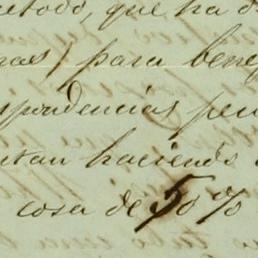 etodo, que ha d
gas) para bene
spondencias pen
ntan haciendo
cosa de 50%